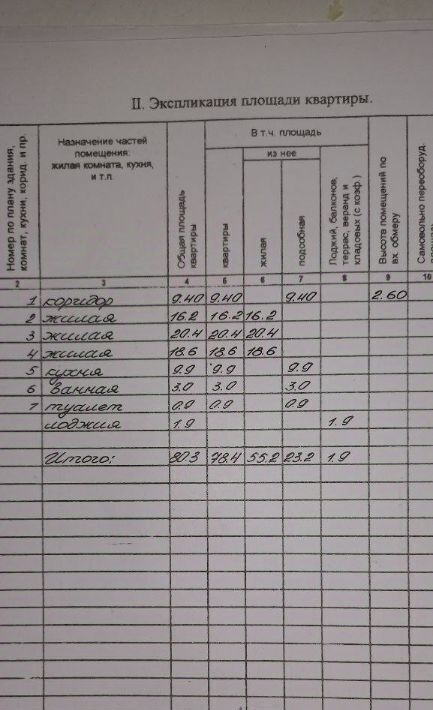 II. Экспликация площади квартиры.
Номер по плану здания, комнат, кухни, корид. и пр.
Назначение частей
помещения:
жилая комната, кухня,
и т.п.
Общая площадь
квартиры
В т.ч. площадь
квартиры
из нее
жилая
подсобная
Лоджий, балконов,
террас, веранд и
кладовых (с коэф.)
Высота помещений по
вх. обмеру
Самовольно переоборуд.
2 3 4 5 6 7 8 9 10
1 коридор 9.40 9.40 9.40 2.60
2 жилая 16.2 16.2 16.2
3 жилая 20.4 20.4 20.4
4 жилая 18.6 18.6 18.6
5 кухня 9.9 9.9 9.9
6 ванная 3.0 3.0 3.0
7 туалет 0.9 0.9 0.9
лоджия 1.9 1.9
Итого: 80.3 78.4 55.2 23.2 1.9